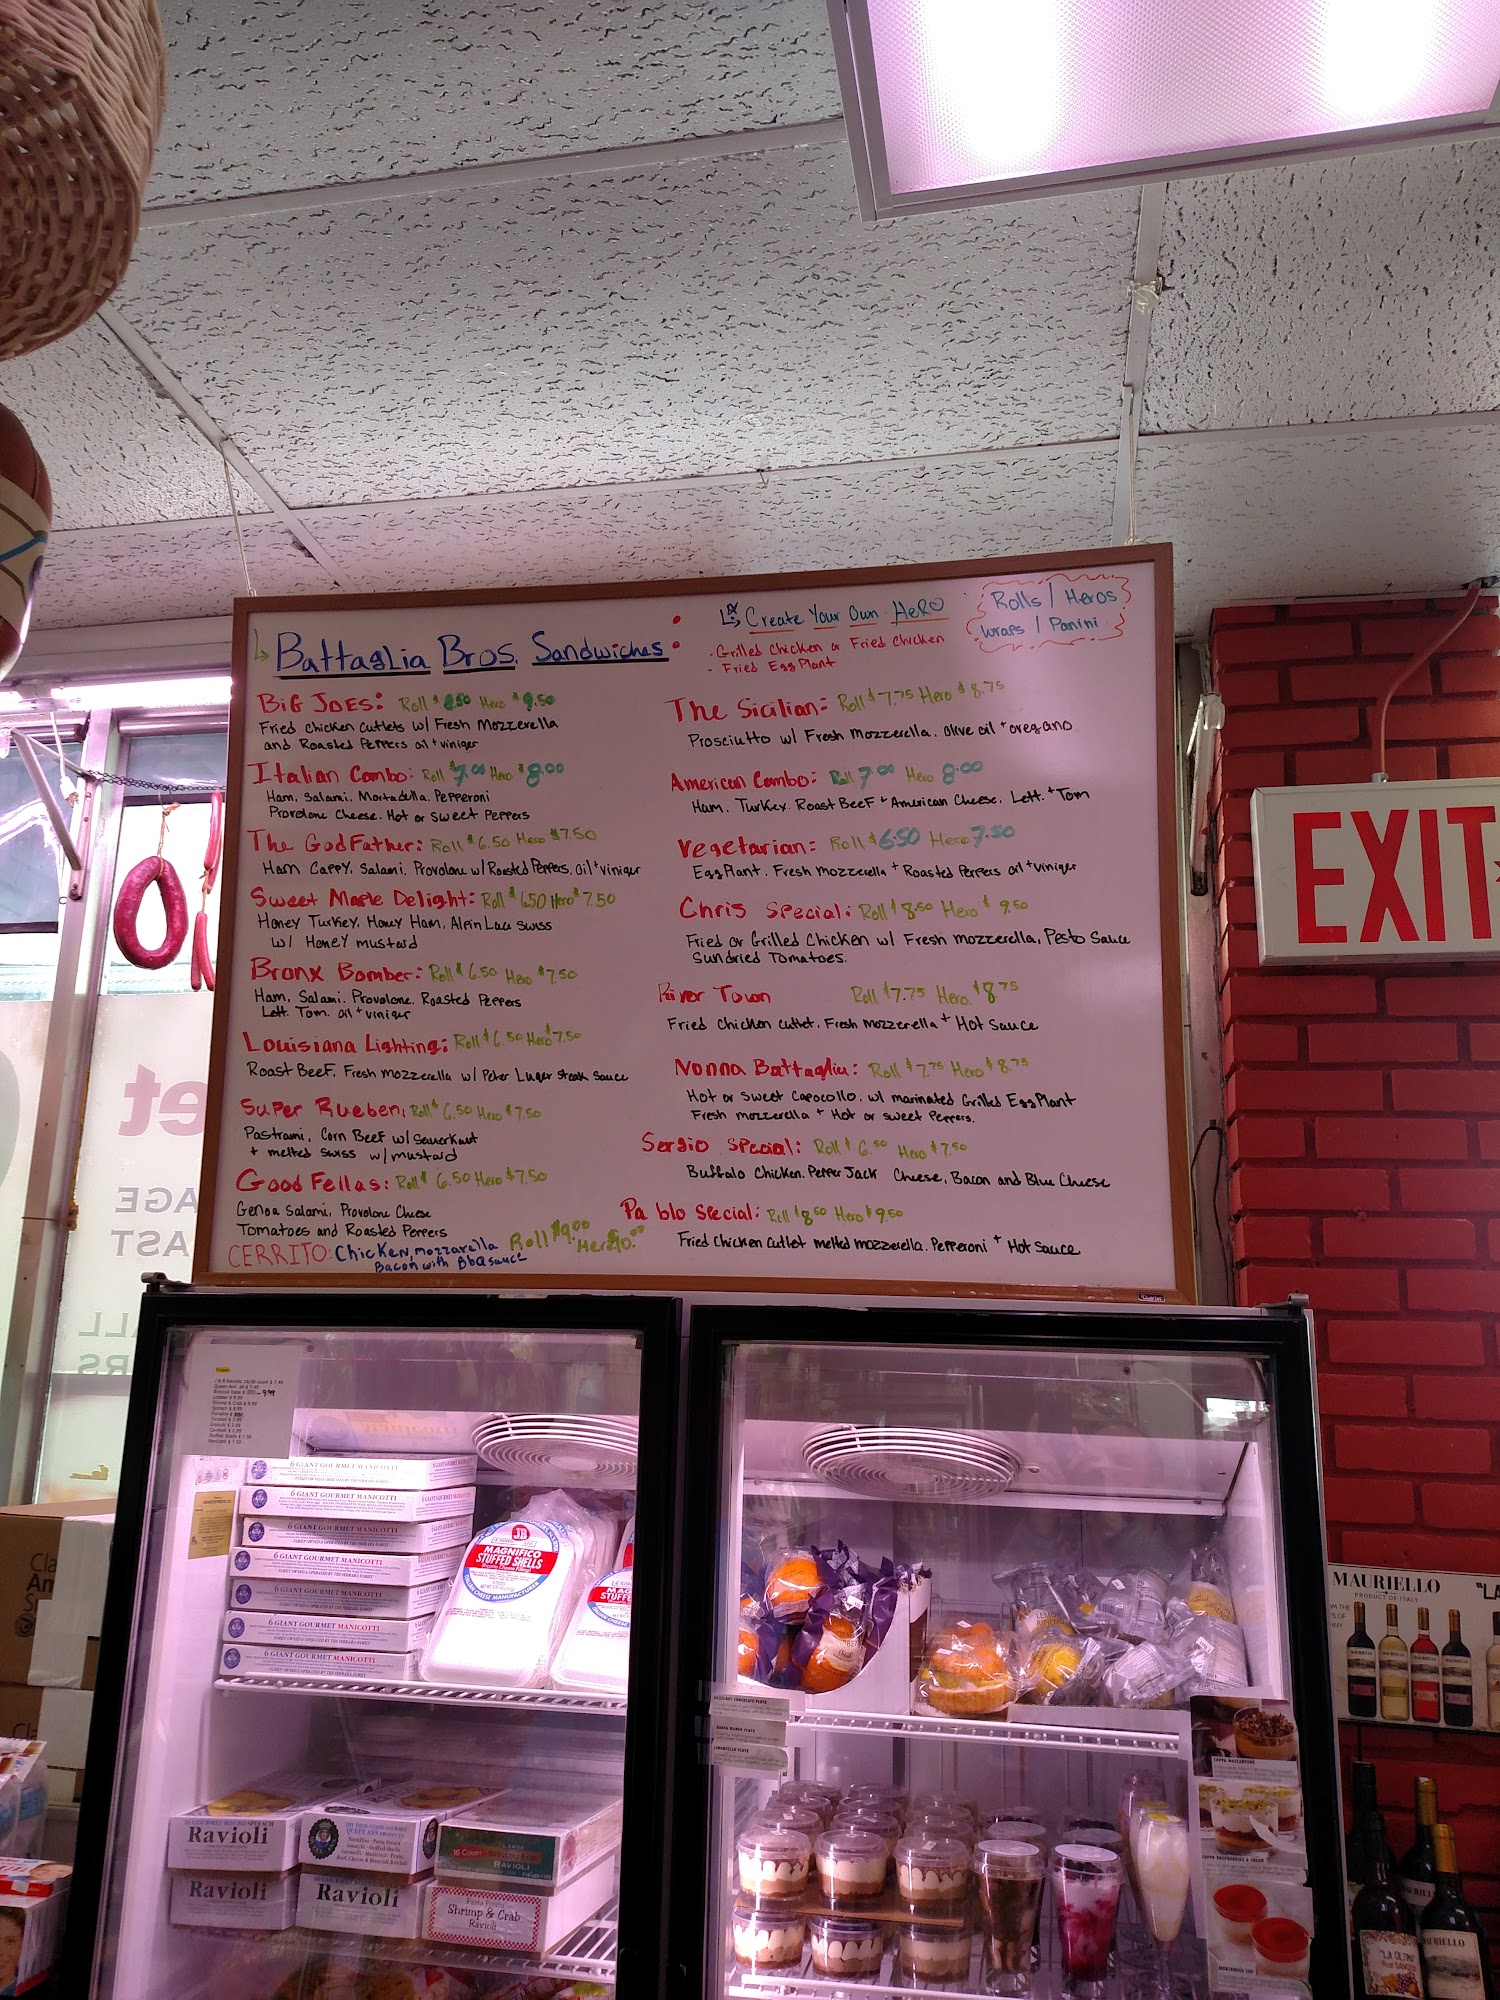 Battaglia Bros. Sandwiches
Create Your Own HeRO
· Grilled Chicken or Fried Chicken
· Fried EggPlant
Rolls / Heros
wraps / Panini
BiG JOES: Roll $8.50 Hero $9.50
Fried Chicken Cutlets w/ Fresh Mozzerella
and Roasted Peppers oil + viniger
Italian Combo: Roll $7.00 Hero $8.00
Ham, Salami, Mortadella, Pepperoni
Provolone Cheese, Hot or Sweet Peppers
The GodFather: Roll $6.50 Hero $7.50
Ham Cappy, Salami, Provolone w/ Roasted Peppers, oil + viniger
Sweet Maple Delight: Roll $6.50 Hero $7.50
Honey Turkey, Honey Ham, Alpin Lace Swiss
w/ Honey mustard
Bronx Bomber: Roll $6.50 Hero $7.50
Ham, Salami, Provolone, Roasted Peppers
Lett. Tom. oil + viniger
Louisiana Lighting: Roll $6.50 Hero $7.50
Roast Beef, Fresh Mozzerella w/ Peter Luger Steak Sauce
Super Rueben: Roll $6.50 Hero $7.50
Pastrami, Corn Beef w/ Sauerkraut
+ melted Swiss w/ mustard
Good Fellas: Roll $6.50 Hero $7.50
Genoa Salami, Provolone Cheese
Tomatoes and Roasted Peppers
CERRITO: Chicken, mozzarella Roll $9.00 Hero $10.00
Bacon with BbQ sauce
The Sicilian: Roll $7.75 Hero $8.75
Prosciutto w/ Fresh Mozzerella, olive oil + oregano
American Combo: Roll 7.00 Hero 8.00
Ham, Turkey, Roast Beef + American Cheese, Lett. + Tom
Vegetarian: Roll $6.50 Hero 7.50
EggPlant, Fresh mozzerella + Roasted Peppers oil + viniger
Chris Special: Roll $8.50 Hero $9.50
Fried or Grilled Chicken w/ Fresh mozzerella, Pesto Sauce
Sundried Tomatoes.
River Town Roll $7.75 Hero $8.75
Fried Chicken cutlet, Fresh Mozzerella + Hot Sauce
Nonna Battaglia: Roll $7.75 Hero $8.75
Hot or Sweet Capocollo, w/ marinated Grilled EggPlant
Fresh mozzerella + Hot or sweet Peppers.
Sergio Special: Roll $6.50 Hero $7.50
Buffalo Chicken, Pepper Jack Cheese, Bacon and Blue Cheese
Pablo Special: Roll $8.50 Hero $9.50
Fried Chicken Cutlet melted mozzerella, Pepperoni + Hot Sauce
EXIT
6 GIANT GOURMET MANICOTTI
6 GIANT GOURMET MANICOTTI
6 GIANT GOURMET MANICOTTI
6 GIANT GOURMET MANICOTTI
6 GIANT GOURMET MANICOTTI
6 GIANT GOURMET MANICOTTI
6 GIANT GOURMET MANICOTTI
JB
MAGNIFICO
STUFFED SHELLS
Ravioli
QUEEN ANN
16 COUNT
RAVIOLI
Ravioli
Ravioli
Shrimp & Crab
Ravioli
MAURIELLO
PRODUCT OF ITALY